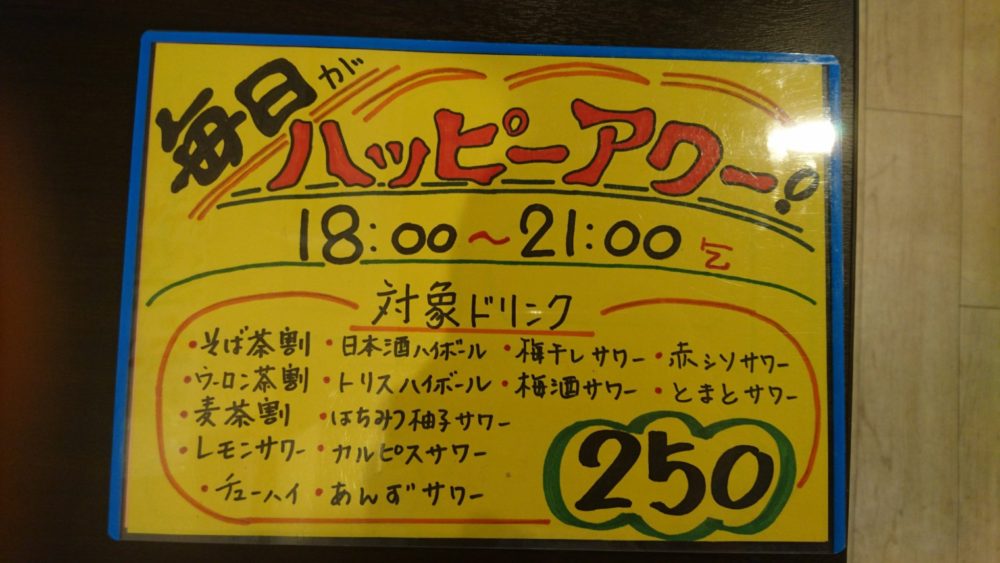 毎日が
ハッピーアワー!
18:00~21:00迄
対象ドリンク
・そば茶割 ・日本酒ハイボール ・梅干しサワー ・赤シソサワー
・ウーロン茶割 ・トリスハイボール ・梅酒サワー ・とまとサワー
・麦茶割 ・はちみつ柚子サワー
・レモンサワー ・カルピスサワー
・チューハイ ・あんずサワー
250